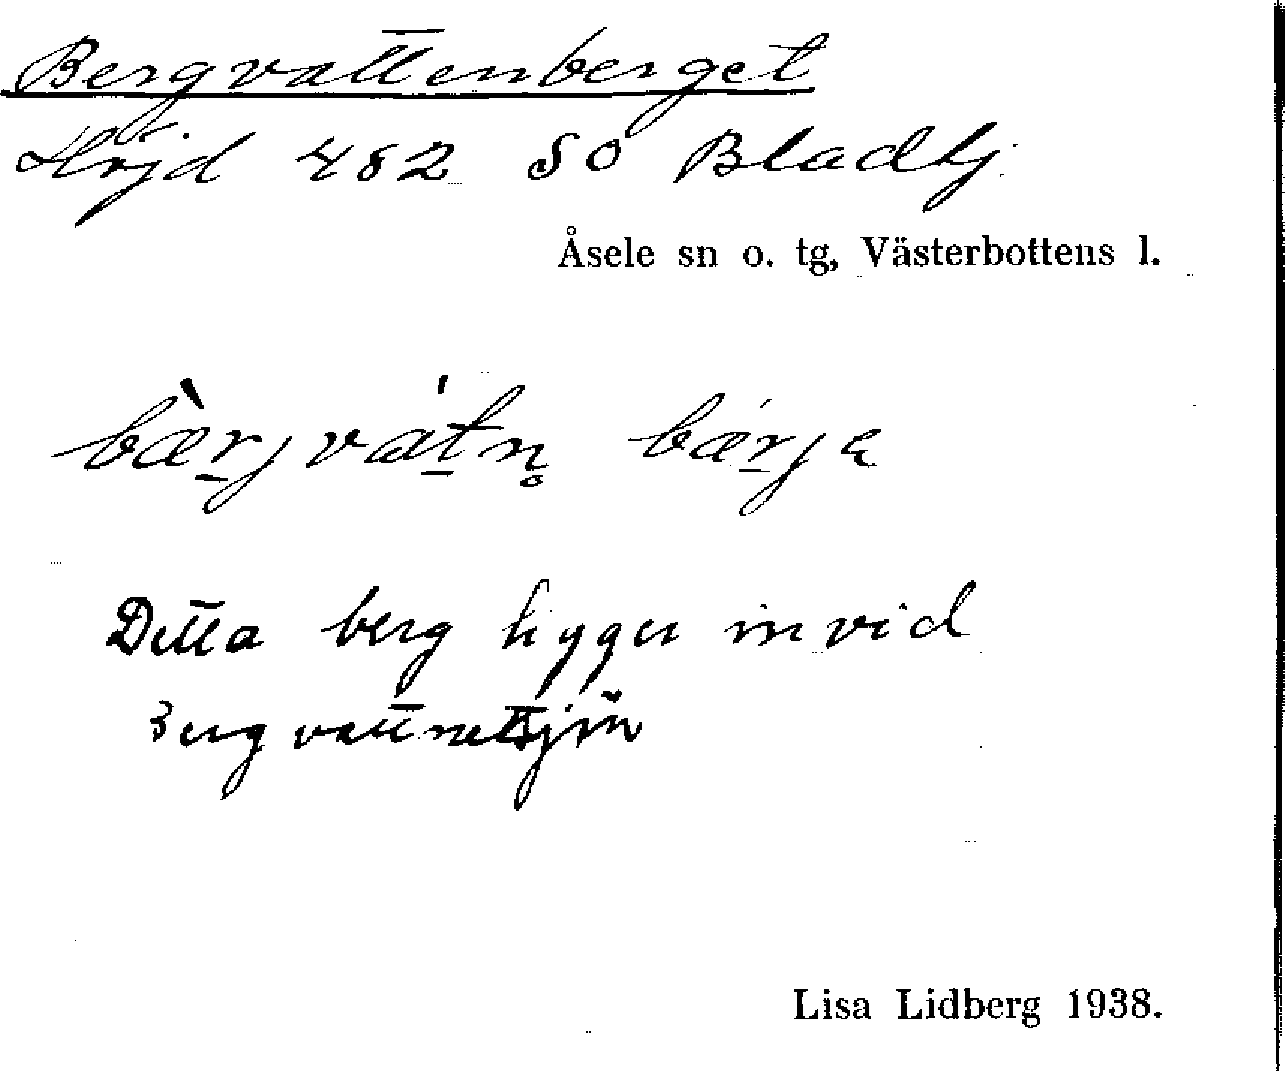 Bergvattenberget
Höjd 482 SO Bladtj.
Åsele sn o. tg, Västerbottens l.
bæ̀rjvátn̥ bǽrję
Detta berg ligger invid
Bergvattnettjärn
Lisa Lidberg 1938.